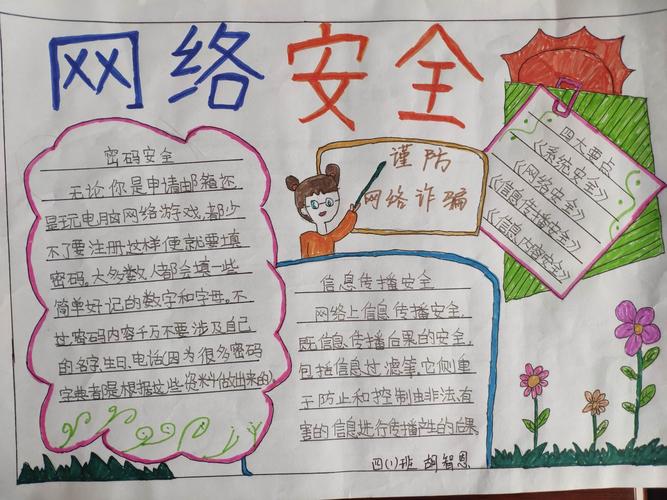 网络安全
密码安全
无论你是申请邮箱还
是玩电脑网络游戏,都少
不了要注册,这样便就要填
密码。大多数人都会填一些
简单好记的数字和字母。不
过,密码内容千万不要涉及自己
的名字、生日、电话(因为很多密码
字典者都是根据这些资料做出来的)
谨防
网络诈骗
四大要点
《系统安全》
《网络安全》
《信息传播安全》
《信息内容安全》
信息传播安全
网络上信息传播安全,
既信息传播后果的安全,
包括信息过滤等,它侧重
于防止和控制由非法、有
害的信息进行传播产生的后果。
四(1)班 胡智恩